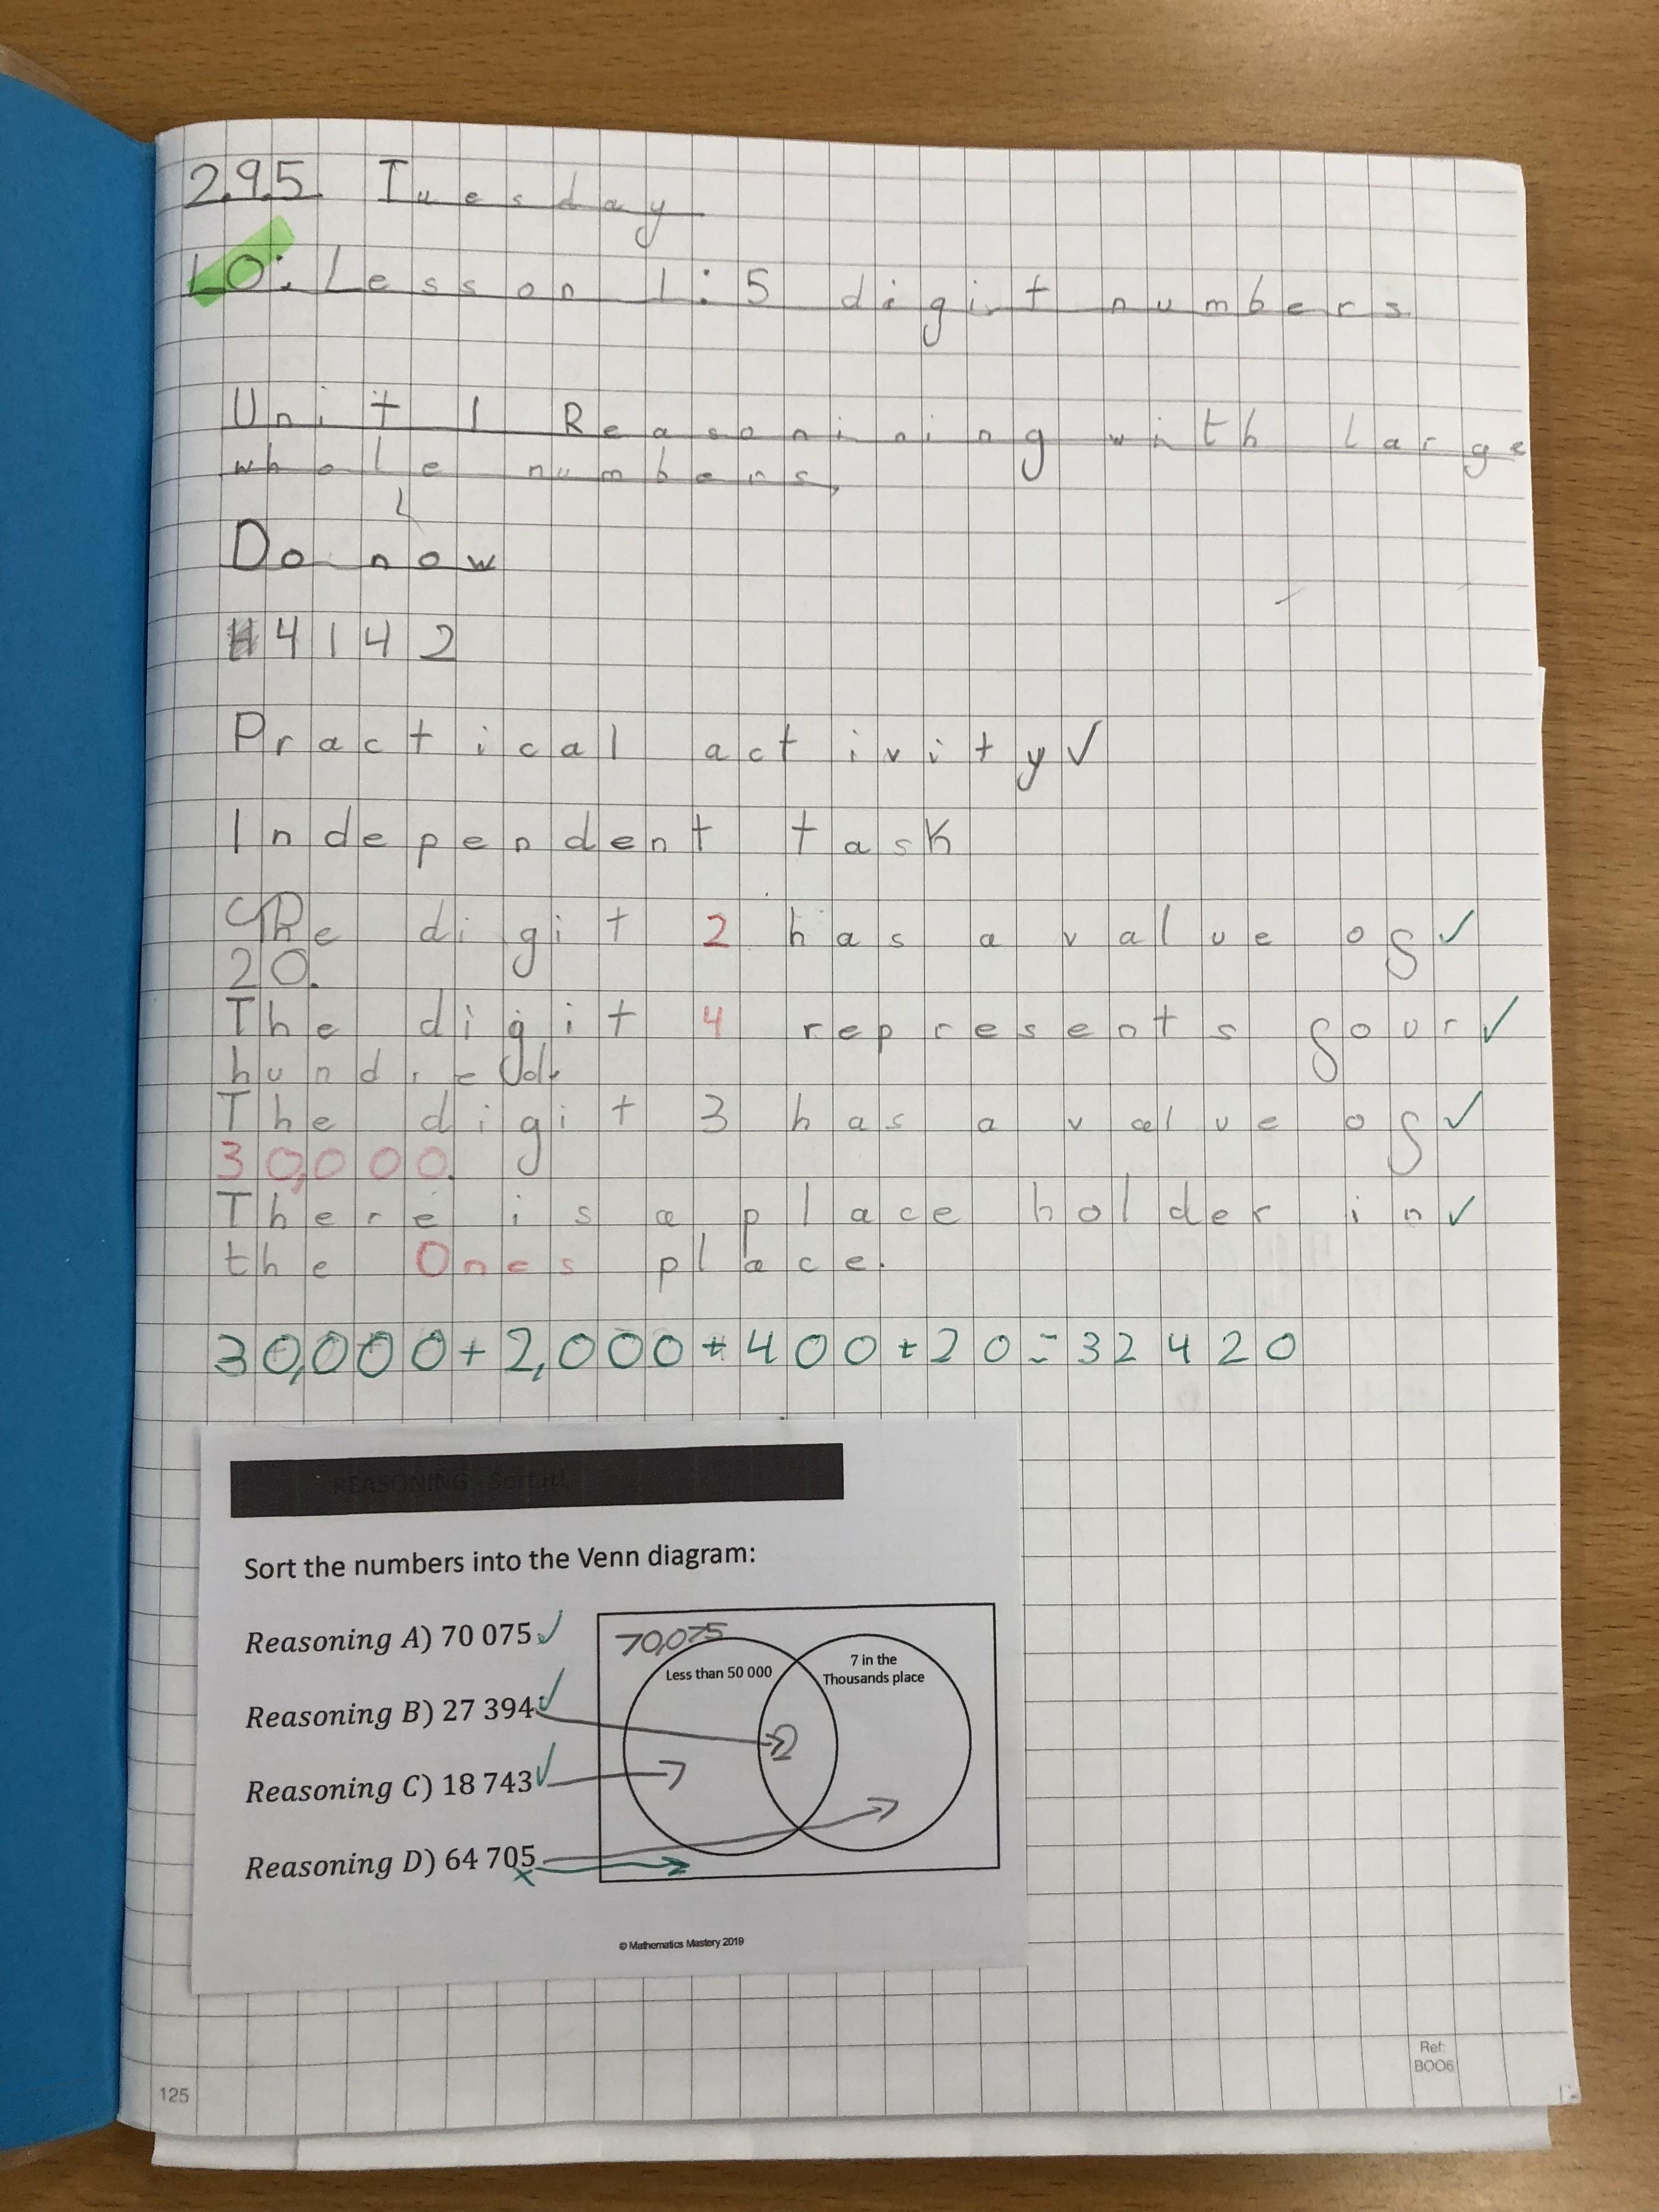 2.9.5. Tuesday
LO: Lesson 1: 5 digit numbers
Unit 1 Reasonining with large
whole numbers,
Do now
4142
Practical activity ✓
Independent task
The digit 2 has a value of ✓
20.
The digit 4 represents four ✓
hundred.
The digit 3 has a value of ✓
30,000.
There is a place holder in ✓
the Ones place.
30,000 + 2,000 + 400 + 20 = 32420
REASONING - Sort it!
Sort the numbers into the Venn diagram:
Reasoning A) 70 075 ✓
Reasoning B) 27 394 ✓
Reasoning C) 18 743 ✓
Reasoning D) 64 705 x
70,075
Less than 50 000
7 in the
Thousands place
© Mathematics Mastery 2019
Ref:
BOO6
125